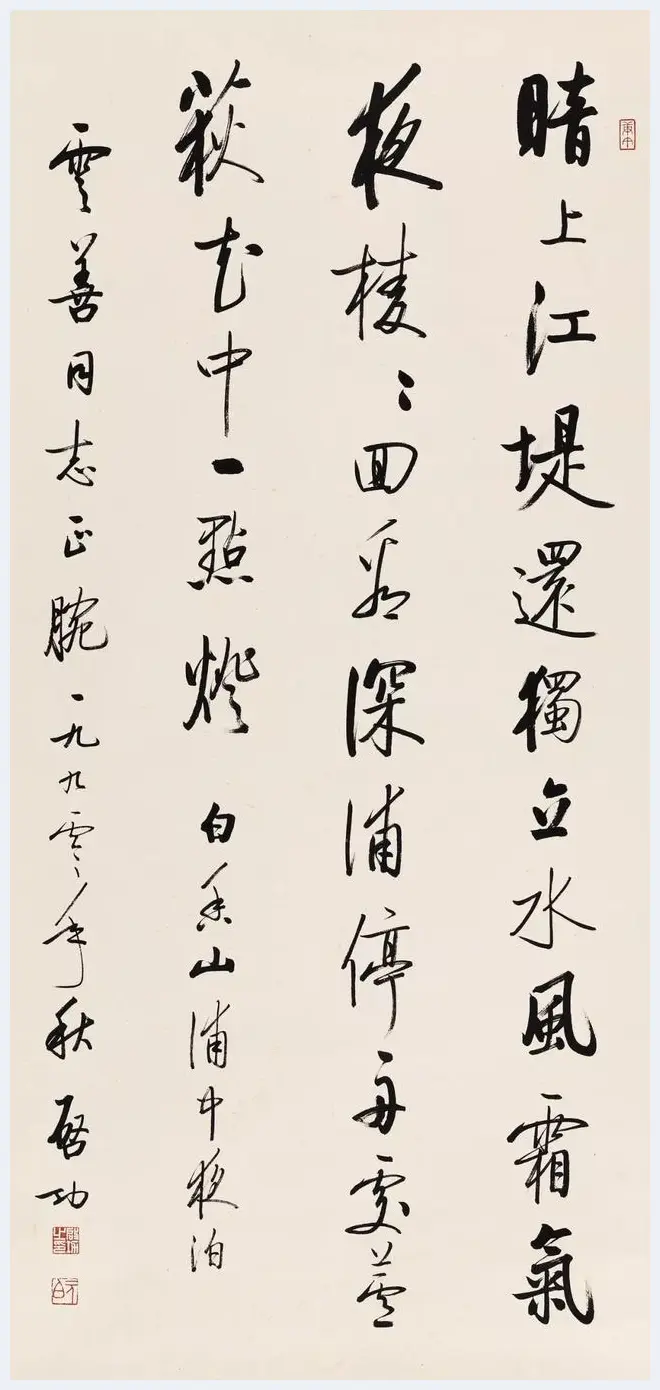 暗上江堤還獨立水風霜氣
夜棱〻囬看深浦停舟處蘆
荻花中一點燈 白香山浦中夜泊
雲善同志正腕 一九九零年秋 啓功
元白